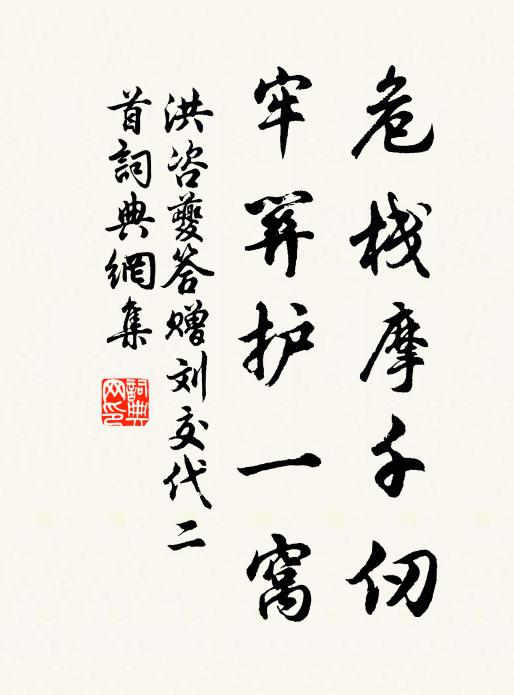 危栈摩千仞
牢护一窝
洪咨夔答赠刘交代二
首詞典網集
詞典
网印